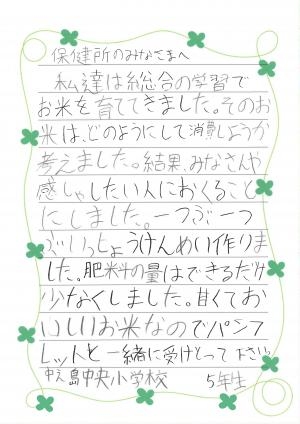 保健所のみなさまへ
私達は総合の学習で
お米を育ててきました。そのお
米は、どのようにして消費しようか
考えました。結果、みなさんや
感しゃしたい人におくること
にしました。一つぶ一つ
ぶいっしょうけんめい作りま
した。肥料の量はできるだけ
少なくしました。甘くてお
いしいお米なのでパンフ
レットと一緒に受けとって下さい
島中央小学校 5年生